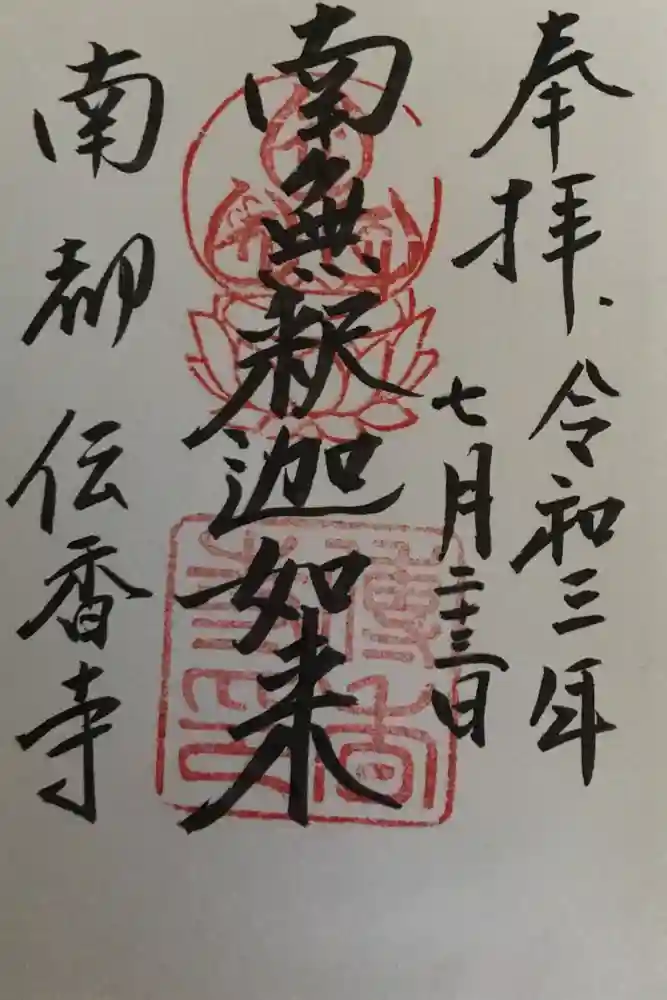 奉拝
令和三年
七月二十三日
南無釈迦如来
南都 伝香寺